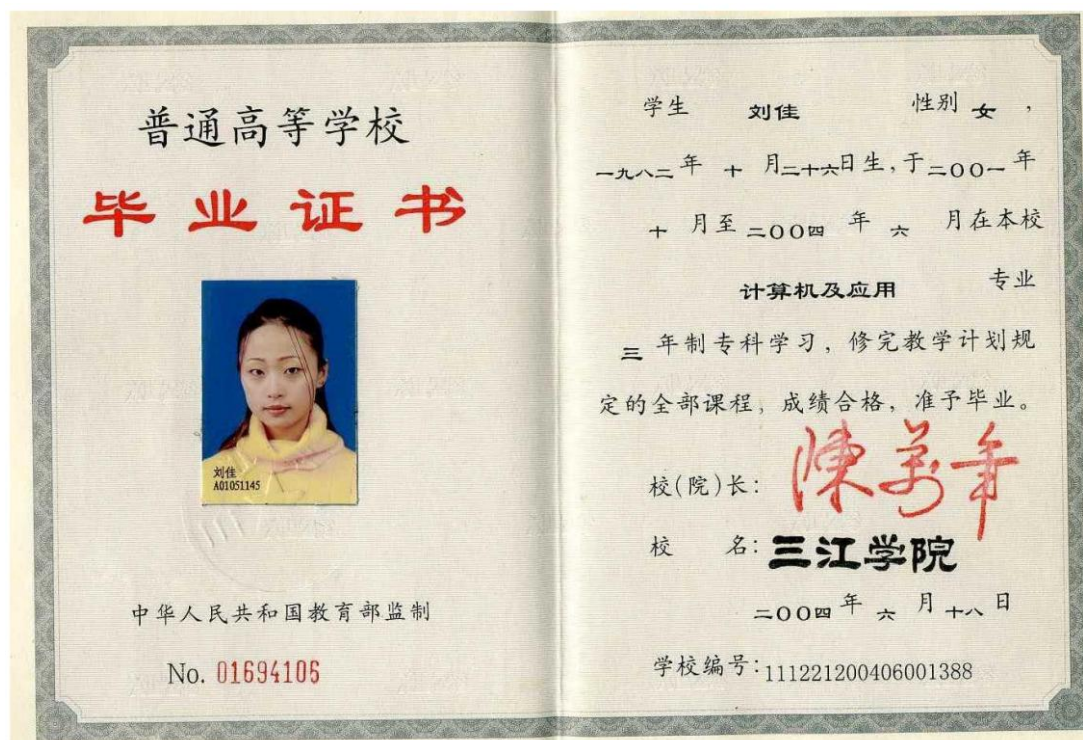 普通高等学校
毕业证书
刘佳
A01051145
中华人民共和国教育部监制
No. 01694106
学生 刘佳 性别 女，
一九八二年 十 月二十六日生，于二〇〇一年
十 月至二〇〇四 年 六 月在本校
计算机及应用 专业
三 年制专科学习，修完教学计划规
定的全部课程，成绩合格，准予毕业。
校(院)长： 陈万年
校 名：三江学院
二〇〇四年 六 月十八日
学校编号：111221200406001388